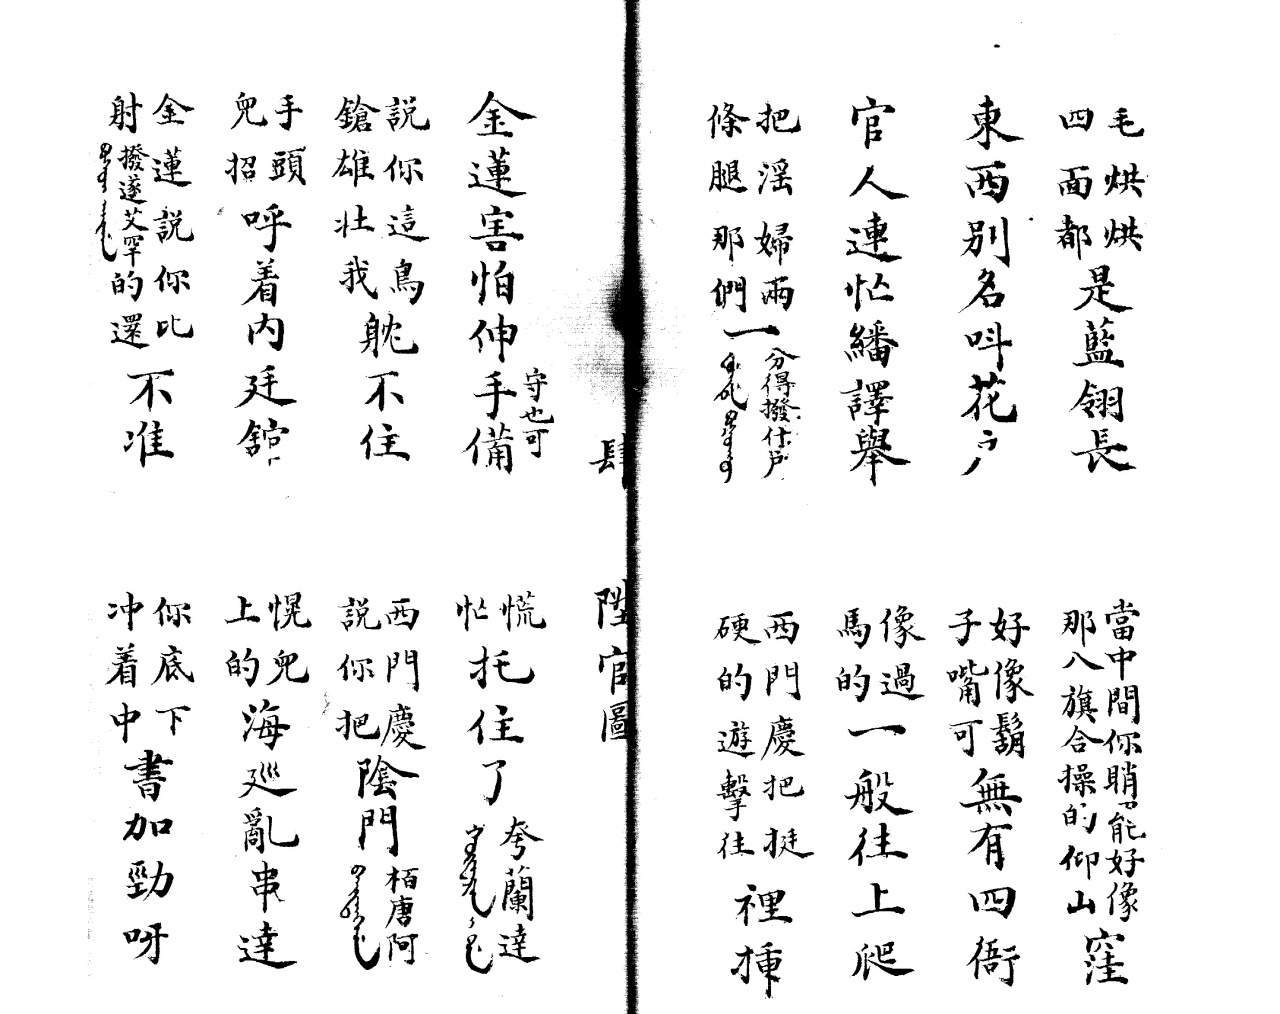 毛烘烘四面都是藍翎長
當中間你睄能好像那八旗合操的仰山窪
東西別名呌花户
好像鬍子嘴可無有四衙
官人連忙繙譯舉
像過馬的一般往上爬
把淫婦兩條腿那們一分得撥什户
西門慶把挺硬的遊擊往裡揷
肆
陞官圖
金蓮害怕伸手備
守也可
慌忙托住了夸蘭達
説你這鳥鎗雄壯我躭不住
西門慶説你把陰門栢唐阿
手頭兒招呼着内廷舘
愰兒上的海廵亂串達
金蓮説你比射撥遂艾罕的還不准
你底下冲着中書加勁呀